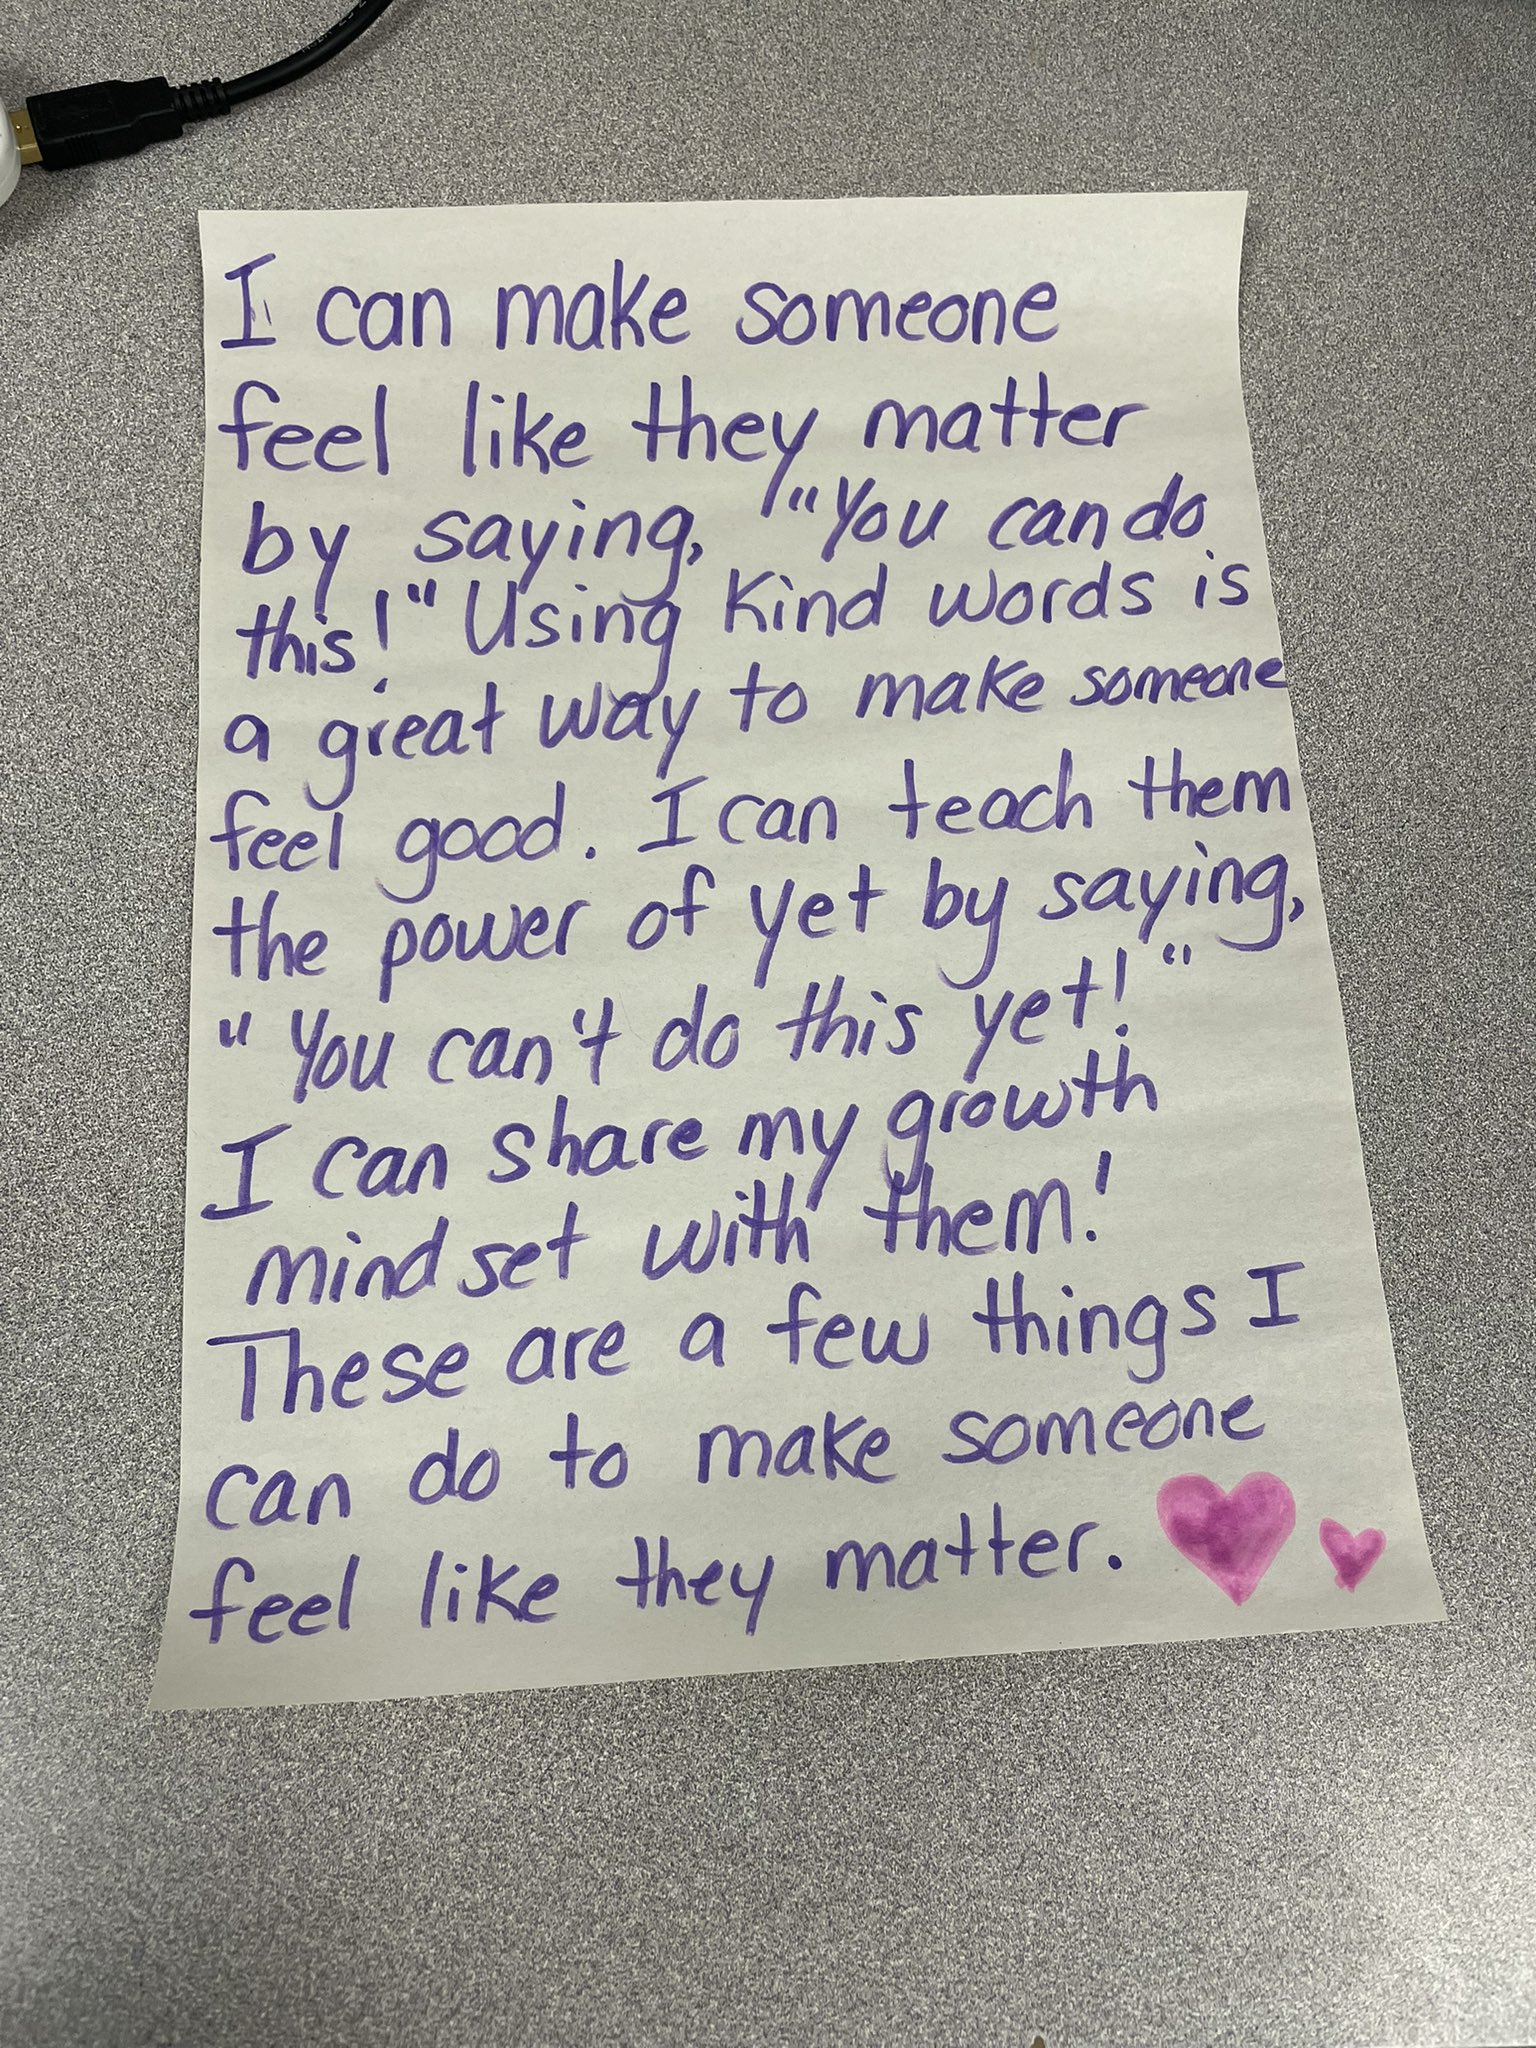 I can make someone
feel like they matter
by saying, "You can do
this!" Using kind words is
a great way to make someone
feel good. I can teach them
the power of yet by saying,
"You can't do this yet!"
I can share my growth
mindset with them!
These are a few things I
can do to make someone
feel like they matter.